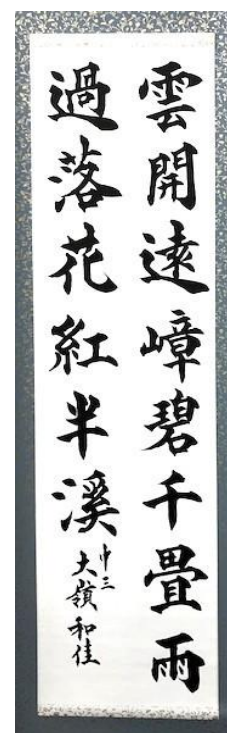 雲開遠嶂碧千畳雨
過落花紅半溪
中三
大嶺和佳